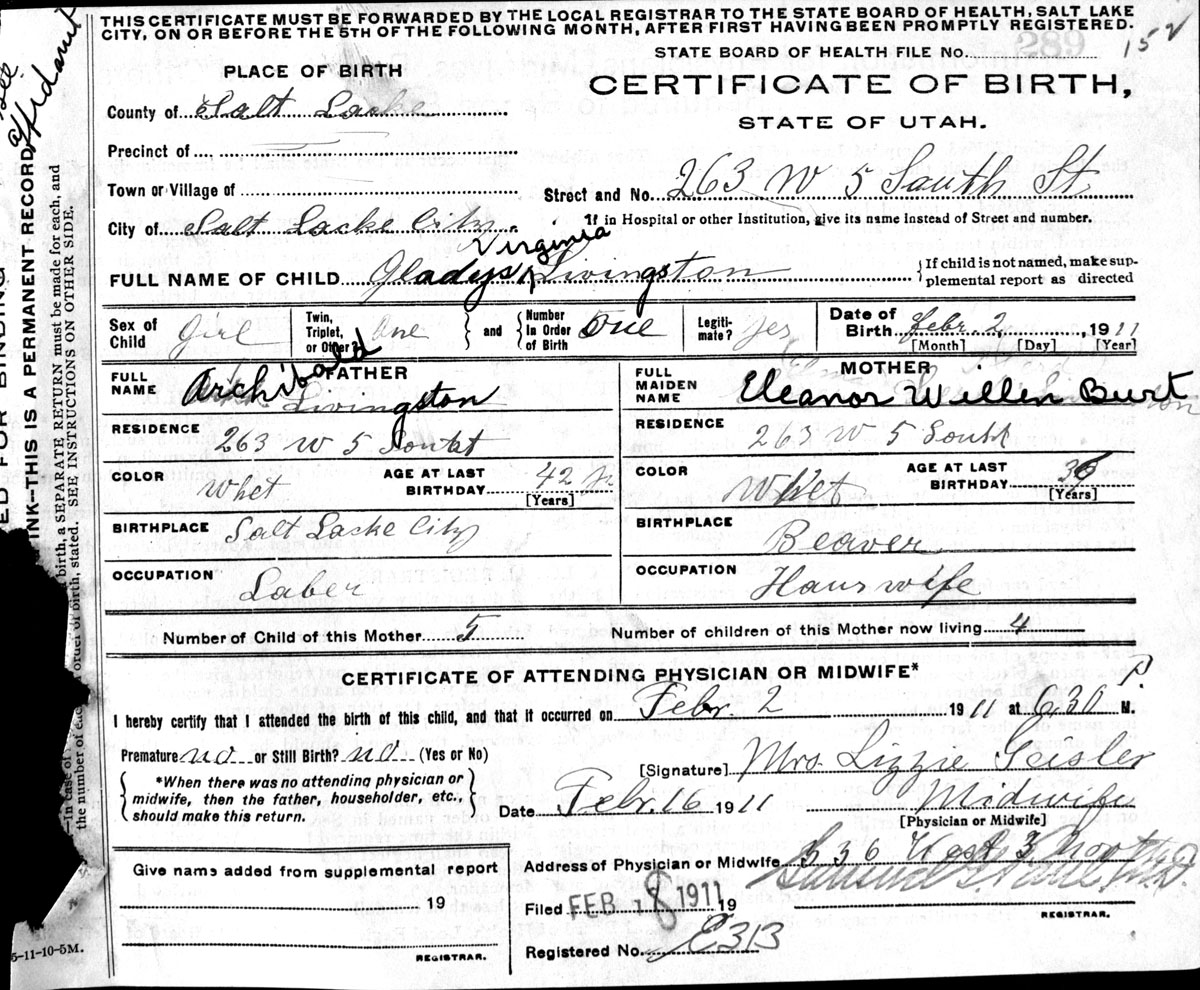 See
affidavit
THIS CERTIFICATE MUST BE FORWARDED BY THE LOCAL REGISTRAR TO THE STATE BOARD OF HEALTH, SALT LAKE
CITY, ON OR BEFORE THE 5TH OF THE FOLLOWING MONTH, AFTER FIRST HAVING BEEN PROMPTLY REGISTERED.
STATE BOARD OF HEALTH FILE No. 152
PLACE OF BIRTH
CERTIFICATE OF BIRTH,
STATE OF UTAH.
County of Salt Lacke
Precinct of
Town or Village of
Street and No. 263 W 5 South St
City of Salt Lacke City
If in Hospital or other Institution, give its name instead of Street and number.
Virginia
FULL NAME OF CHILD Gladys Livingston
If child is not named, make supplemental report as directed
Sex of Child Girl
Twin, Triplet, or Other? One
and Number In Order of Birth One
Legitimate? yes
Date of Birth Febr. 2, 1911
[Month] [Day] [Year]
FATHER
FULL NAME Archibald Livingston
RESIDENCE 263 W 5 South
COLOR Whet
AGE AT LAST BIRTHDAY 42
[Years]
BIRTHPLACE Salt Lacke City
OCCUPATION Laber
MOTHER
FULL MAIDEN NAME Eleanor Willen Burt
RESIDENCE 263 W 5 South
COLOR Whet
AGE AT LAST BIRTHDAY
[Years]
BIRTHPLACE Beaver
OCCUPATION Hauswife
Number of Child of this Mother 5
Number of children of this Mother now living 4
CERTIFICATE OF ATTENDING PHYSICIAN OR MIDWIFE*
I hereby certify that I attended the birth of this child, and that it occurred on Febr. 2 1911 at 6.30 P. M.
Premature no or Still Birth? no (Yes or No)
*When there was no attending physician or
midwife, then the father, householder, etc.,
should make this return.
[Signature] Mrs. Lizzie Geisler
Date Febr. 16 1911
Midwife
[Physician or Midwife]
Address of Physician or Midwife 536 West 3 North
Give name added from supplemental report
19
REGISTRAR.
Filed FEB 18 1911 19
REGISTRAR.
Registered No. E313
5-11-10-5M.
INK--THIS IS A PERMANENT RECORD
birth, a SEPARATE RETURN must be made for each, and
order of birth, stated. SEE INSTRUCTIONS ON OTHER SIDE.
--In case of
the number of each